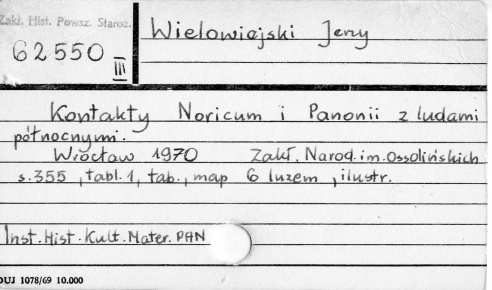 Zakł. Hist. Powsz. Staroż.
62550 III
Wielowiejski Jerzy
Kontakty Noricum i Panonii z ludami
północnymi.
Wrocław 1970 Zakł. Narod. im. Ossolińskich
s. 355, tabl. 1, tab., map 6 luzem, ilustr.
Inst. Hist. Kult. Mater. PAN
DUJ 1078/69 10.000